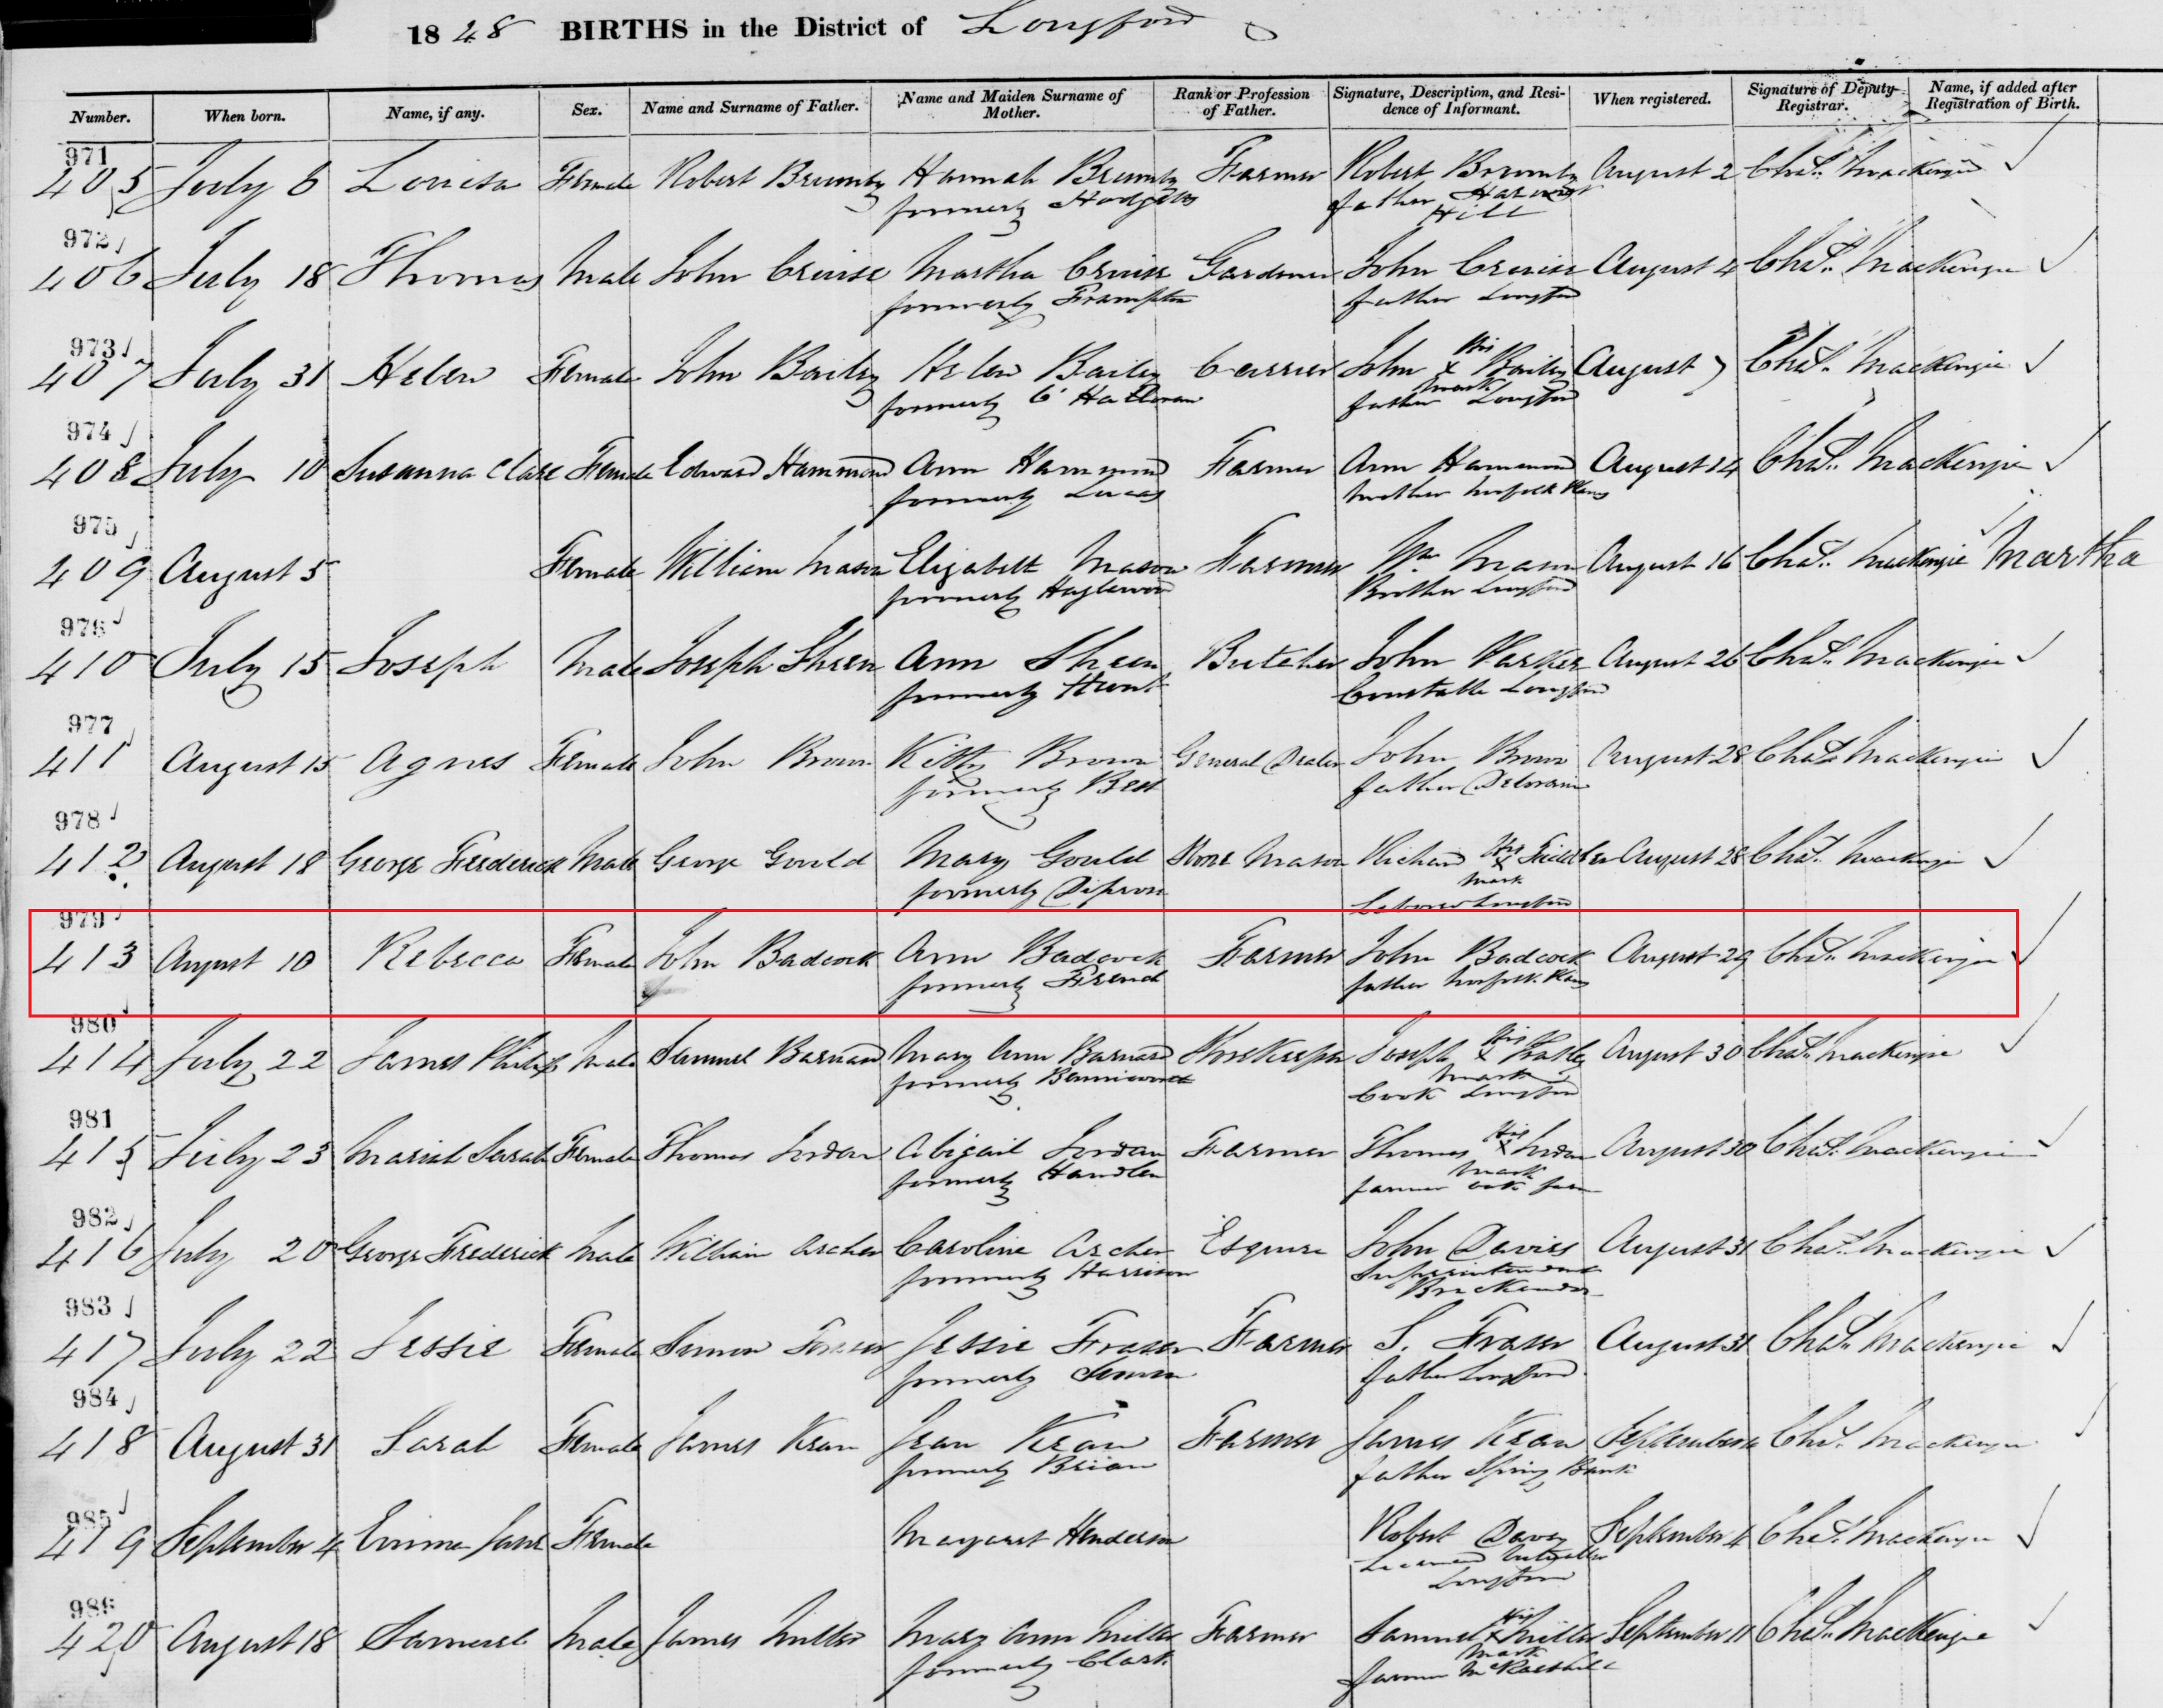 1848 BIRTHS in the District of Longford
Number. When born. Name, if any. Sex. Name and Surname of Father. Name and Maiden Surname of Mother. Rank or Profession of Father. Signature, Description, and Residence of Informant. When registered. Signature of Deputy Registrar. Name, if added after Registration of Birth.
971
405 July 6 Louisa Female Robert Brumby Hannah Brumby Farmer Robert Brumby August 2 Chas. Mackenzie
formerly father
Hill
972
406 July 18 Thomas Male John Cruise Martha Cruise Gardener John Cruise August 4 Chas. Mackenzie
formerly Frampton father Longford
973
407 July 31 Helen Female John Bailey Helen Bailey Carrier John his x mark Bailey August 7 Chas. Mackenzie
formerly O'Halloran father Longford
974
408 July 10 Susanna Clare Female Edward Hammond Ann Hammond Farmer Ann Hammond August 14 Chas. Mackenzie
formerly Lucas Mother Norfolk Plains
975
409 August 5 Female William Mason Elizabeth Mason Farmer Wm. Mason August 16 Chas. Mackenzie Martha
formerly Brother Longford
976
410 July 15 Joseph Male Joseph Sheen Ann Sheen Butcher John Parker August 26 Chas. Mackenzie
formerly Hunt Constable Longford
977
411 August 15 Agnes Female John Brown Kitty Brown General Dealer John Brown August 28 Chas. Mackenzie
formerly Best father Deloraine
978
412 August 18 George Frederick Male George Gould Mary Gould Stone Mason Richard his x mark August 28 Chas. Mackenzie
formerly Labourer Longford
979
413 August 10 Rebecca Female John Badcock Ann Badcock Farmer John Badcock August 29 Chas. Mackenzie
formerly French father Norfolk Plains
980
414 July 22 James Philip Male Samuel Barnard Mary Ann Barnard Joseph his x mark August 30 Chas. Mackenzie
formerly Cook Longford
981
415 July 23 Mariah Sarah Female Thomas Jordan Abigail Jordan Farmer Thomas his x mark Jordan August 30 Chas. Mackenzie
formerly Handlen farmer
982
416 July 20 George Frederick Male William Archer Caroline Archer Esquire John Davies August 31 Chas. Mackenzie
formerly Harrison Superintendent
Brickendon
983
417 July 22 Jessie Female Simon Fraser Jessie Fraser Farmer S. Fraser August 31 Chas. Mackenzie
formerly father Longford
984
418 August 31 Sarah Female James Kean Jean Kean Farmer James Kean September Chas. Mackenzie
formerly Brian father Spring Bank
985
419 September 4 Emma Jane Female Margaret Henderson Robert Davey September 4 Chas. Mackenzie
Licensed Victualler
Longford
986
420 August 18 Samuel Male James Miller Mary Ann Miller Farmer Samuel his x mark Miller September 11 Chas. Mackenzie
formerly Clark farmer